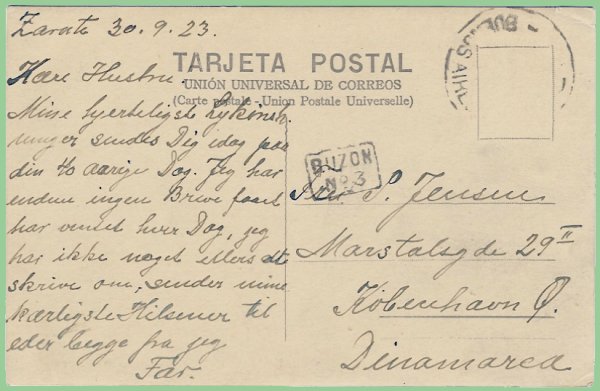 Zarate 30.9.23.
TARJETA POSTAL
UNIÓN UNIVERSAL DE CORREOS
(Carte postale - Union Postale Universelle)
Kære Hustru.
Mine hjerteligste Lykønsk-
ninger sendes Dig idag paa
din 40 aarige Dag. Jeg har
endnu ingen Breve faaet
har ventet hver Dag, jeg
har ikke noget ellers at
skrive om, sender mine
kærligste Hilsener til
eder begge fra jeg
Far.
BUZON
No. 3
S. Jensen
Marstalsgde 29 II
København Ø.
Dinamarca